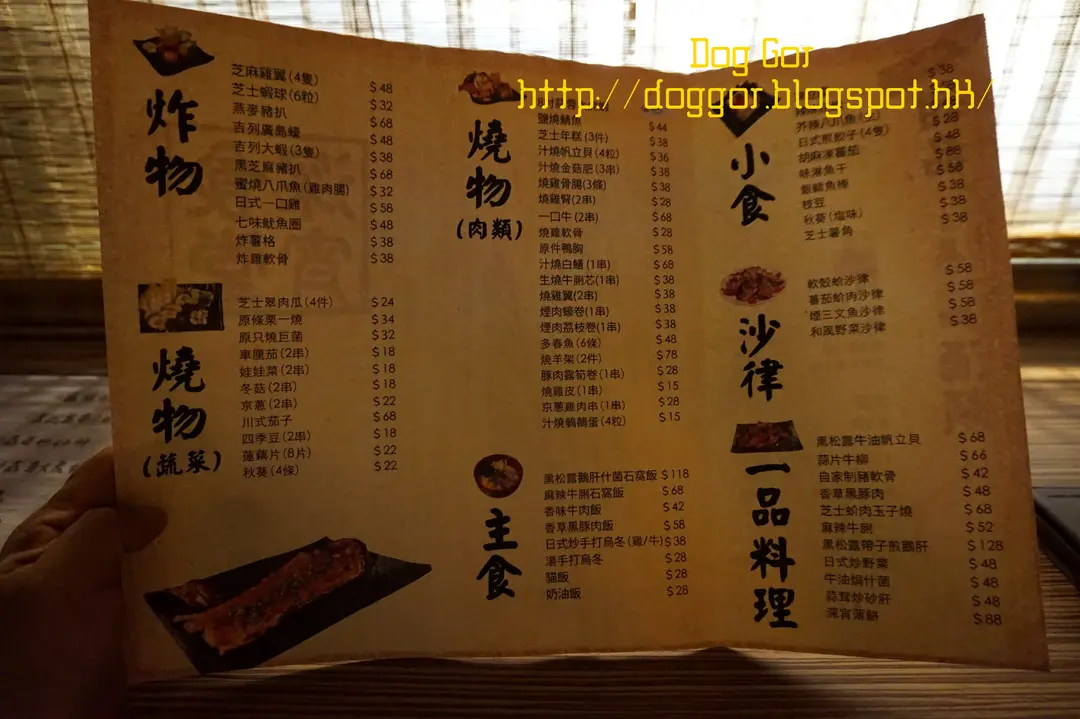 Dog Gor
http://doggor.blogspot.hk/
炸物
芝麻雞翼(4隻) $48
芝士蝦球(6粒) $32
燕麥豬扒 $68
吉列廣島蠔 $48
吉列大蝦(3隻) $38
黑芝麻豬扒 $68
蜜燒八爪魚(雞肉腸) $32
日式一口雞 $58
七味魷魚圈 $48
炸薯格 $38
炸雞軟骨 $38
燒物
(蔬菜)
芝士翠肉瓜(4件) $24
原條栗一燒 $34
原只燒巨菌 $32
車厘茄(2串) $18
娃娃菜(2串) $18
冬菇(2串) $18
京蔥(2串) $22
川式茄子 $68
四季豆(2串) $18
蓮藕片(8片) $22
秋葵(4條) $22
燒物
(肉類)
鹽燒鯖魚 $44
芝士年糕(3件) $38
汁燒帆立貝(4粒) $36
汁燒金菇肥(3串) $38
燒雞骨腸(3條) $38
燒雞腎(2串) $28
一口牛(2串) $68
燒雞軟骨 $28
原件鴨胸 $58
汁燒白鱔(1串) $68
生燒牛脷芯(1串) $38
燒雞翼(2串) $38
煙肉蠔卷(1串) $38
煙肉荔枝卷(1串) $38
多春魚(6條) $48
燒羊架(2件) $78
豚肉露筍卷(1串) $28
燒雞皮(1串) $15
京蔥雞肉串(1串) $28
汁燒鵪鶉蛋(4粒) $15
主食
黑松露鵝肝什菌石窩飯 $118
麻辣牛脷石窩飯 $68
香味牛肉飯 $42
香草黑豚肉飯 $58
日式炒手打烏冬(雞/牛) $38
湯手打烏冬 $28
貓飯 $28
奶油飯 $28
小食
$38
芥辣八爪魚 $28
日式煎餃子(4隻) $48
胡麻凍蕃茄 $88
味淋魚干 $58
銀鱈魚棒 $38
枝豆 $38
秋葵(塩味) $38
芝士薯角
沙律
軟殼蚧沙律 $58
蕃茄蚧肉沙律 $58
煙三文魚沙律 $58
和風野菜沙律 $38
一品料理
黑松露牛油帆立貝 $68
蒜片牛柳 $66
自家制豬軟骨 $42
香草黑豚肉 $48
芝士蚧肉玉子燒 $68
麻辣牛脷 $52
黑松露帶子煎鵝肝 $128
日式炒野菜 $48
牛油焗什菌 $48
蒜茸炒砂肝 $48
深宵薄餅 $88